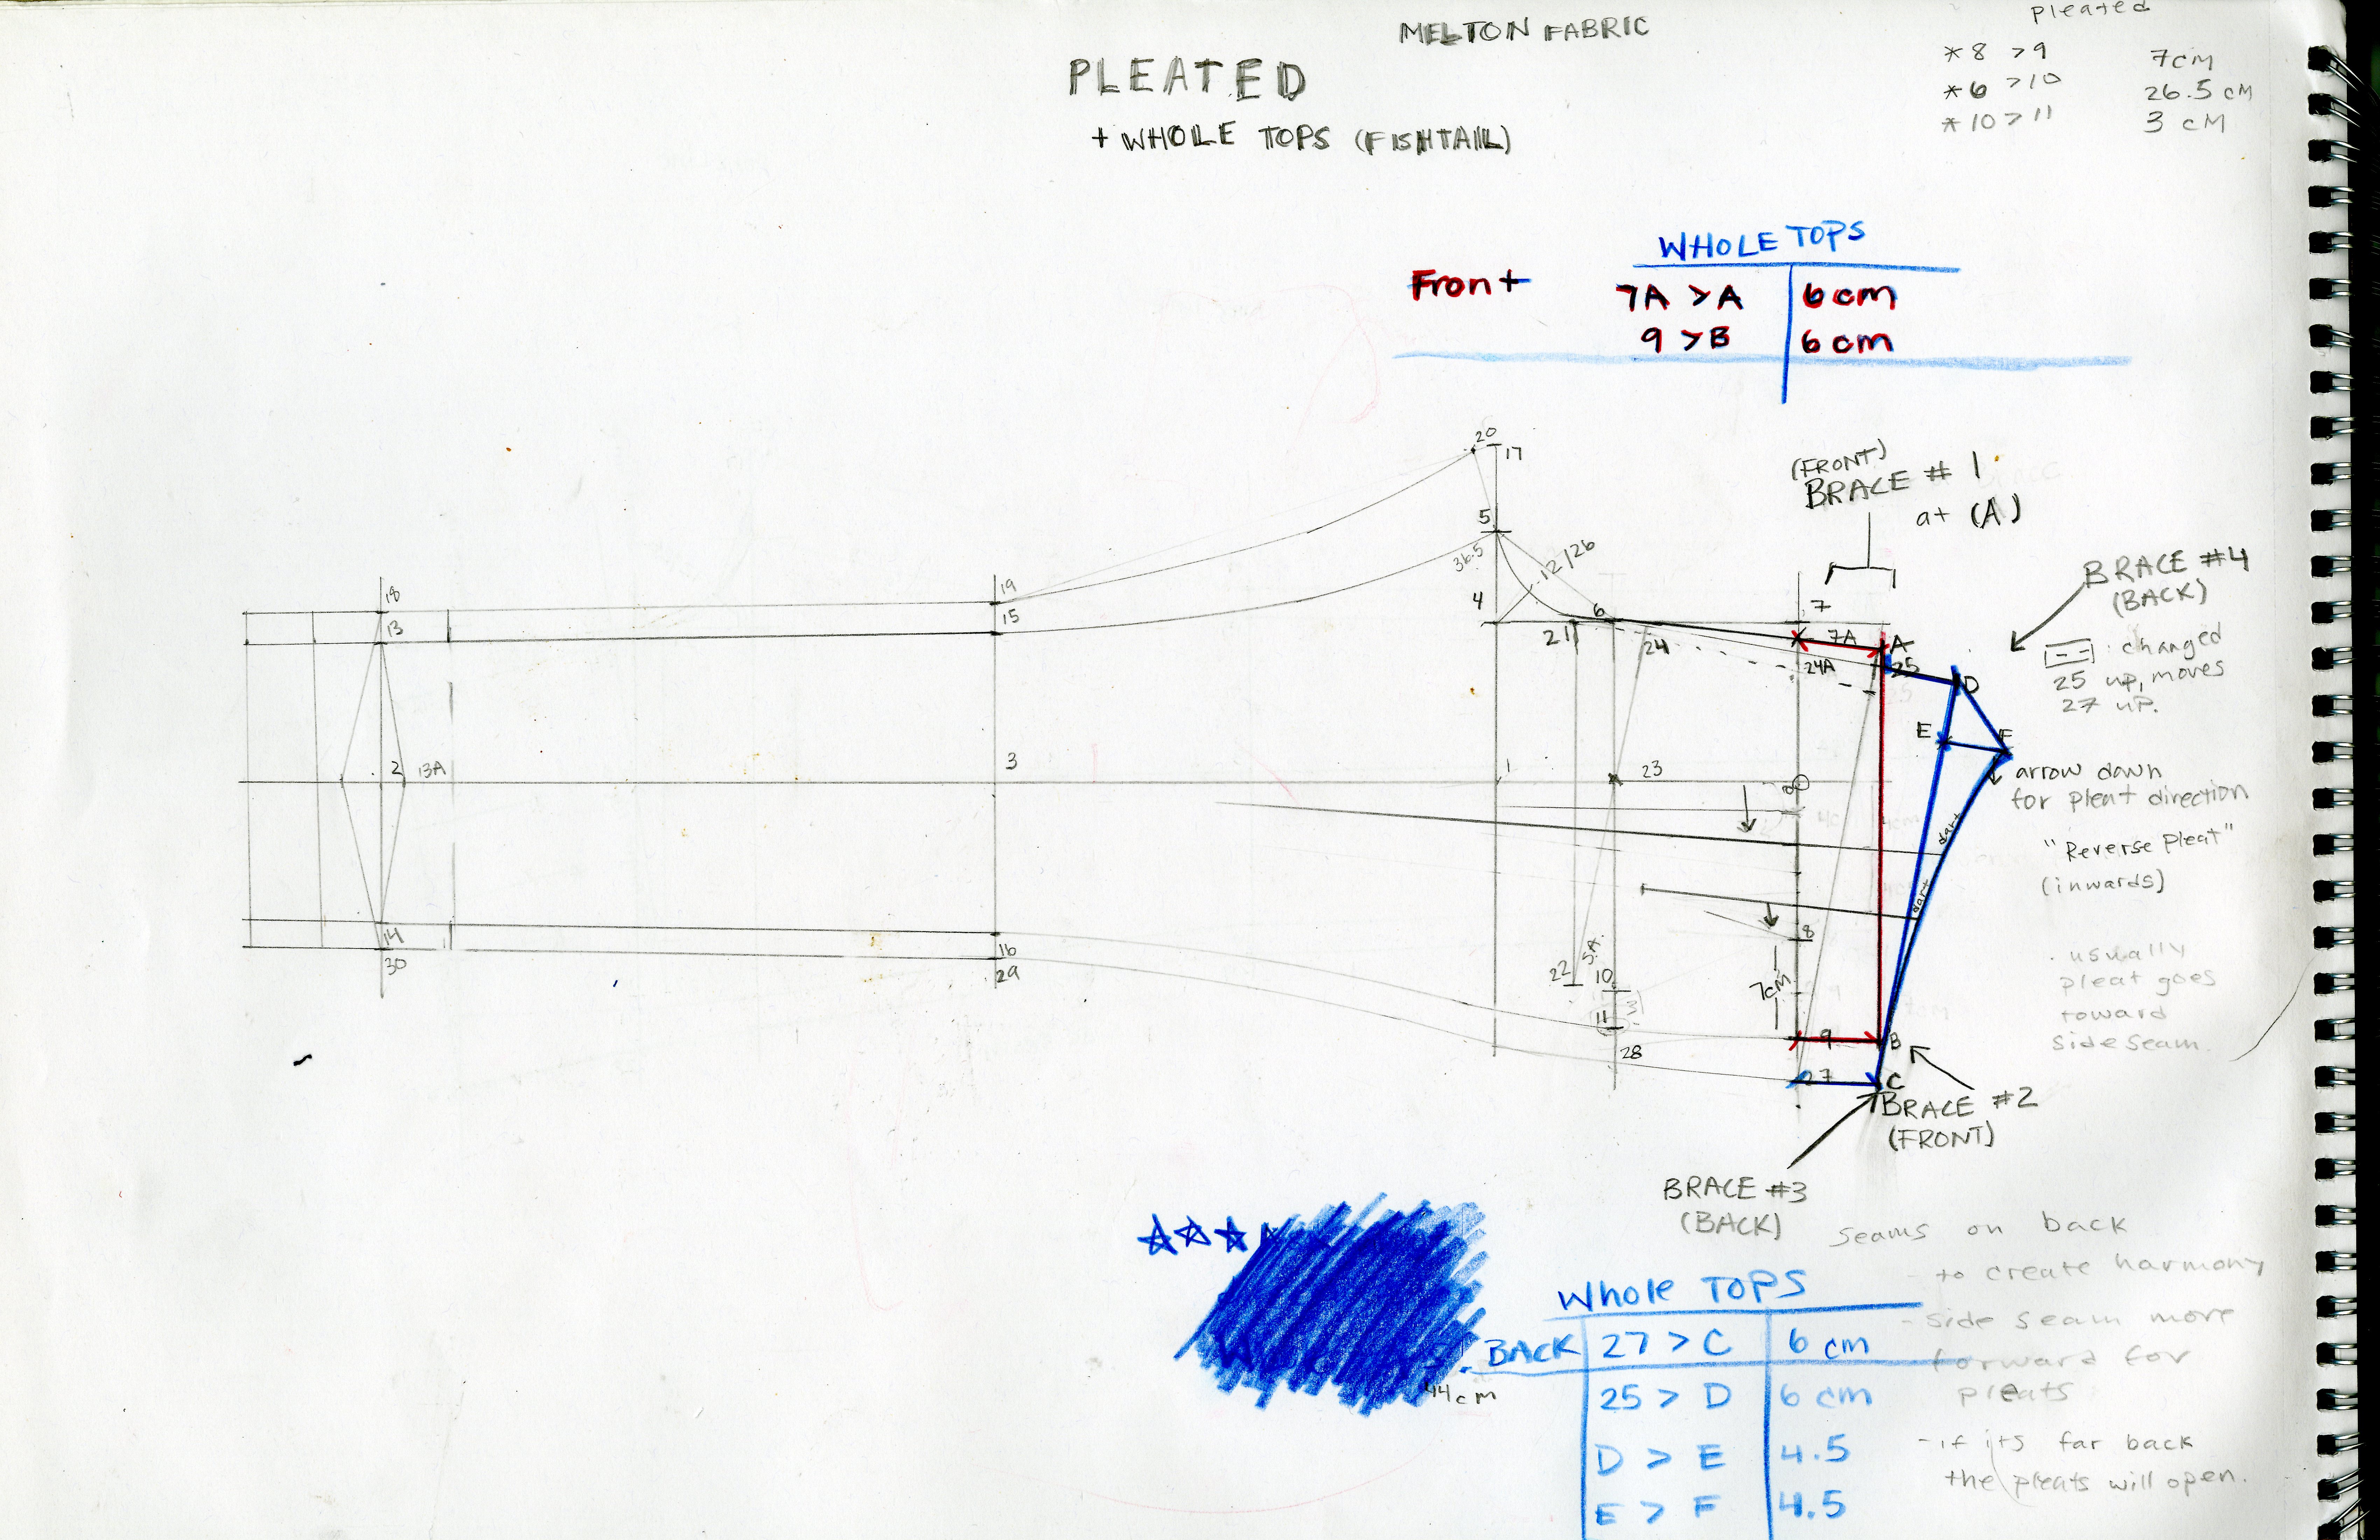 MELTON FABRIC
PLEATED
+ WHOLE TOPS (FISHTAIL)
pleated
*8 >9 7cm
*6 >10 26.5 cM
*10>11 3 cM
WHOLE TOPS
Front 7A >A 6cm
9 >B 6cm
(FRONT)
BRACE # 1
at (A)
BRACE #4
(BACK)
changed
25 up, moves
27 uP.
arrow down
for pleat direction
"Reverse pleat"
(inwards)
. usually
pleat goes
toward
side seam.
20
17
5
36.5
12/26
4
6
7
21
24
7A
24A
A
25
D
E
F
18
13
19
15
2
13A
3
1
23
0
dart
dart
8
7cm
22
S.A.
10
3
11
28
9
B
27
C
14
30
16
29
BRACE #2
(FRONT)
BRACE #3
(BACK)
seams on back
- to create harmony
- side seam more
forward for
pleats
- if its far back
the pleats will open.
Whole TOPS
BACK 27 > C 6 cm
44cm
25 > D 6 cm
D > E 4.5
E > F 4.5